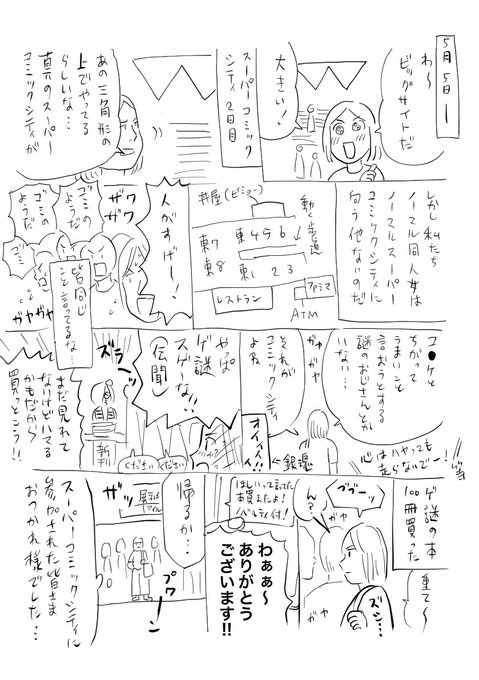 5月5日ー
わ〜
ビッグサイトだ
大きい!
スーパーコミック
シティ2日目
あの三角形の
上でやってる
らしいな…
真のスーパー
コミックシティが
しかし私たち
ノーマル同人女は
ノーマルスーパー
コミックシティに
向う他ないのだ
動く歩道
東456
東123
東7
東8
レストラン
ファミマ
ATM
人がすげー!
ザワ
ザワ
ゴミの
ようだ
ゴミの
ようだ
ゴミ
ガヤガヤ
皆同じ
こと言ってるな…
コ●ケと
ちがって
うまいこと
言おうとする
謎のおじさんとか
いない…
ガヤ
ガヤ
それが
コミックシティ
よね
←銀魂
オイィィ!!
心はハヤっても
走らないでー!
やば
ゲ謎
スゲーな!!
(伝聞)
ズラーッ
新刊
ください
ください
まだ見れて
ないけどハマる
かもだから
買っとこう!!
ゲ謎の本
100冊買った
重て〜
ズシ…
ブブーッ
ん?
ガヤ
ガヤ
ほしいって言ってた
本買えたよ!
ノベルティ付!
わぁぁ〜
ありがとう
ございます!!
帰るか…
ザッ
プワーン
スーパーコミックシティに
参加された皆さま
おつかれ様でした…